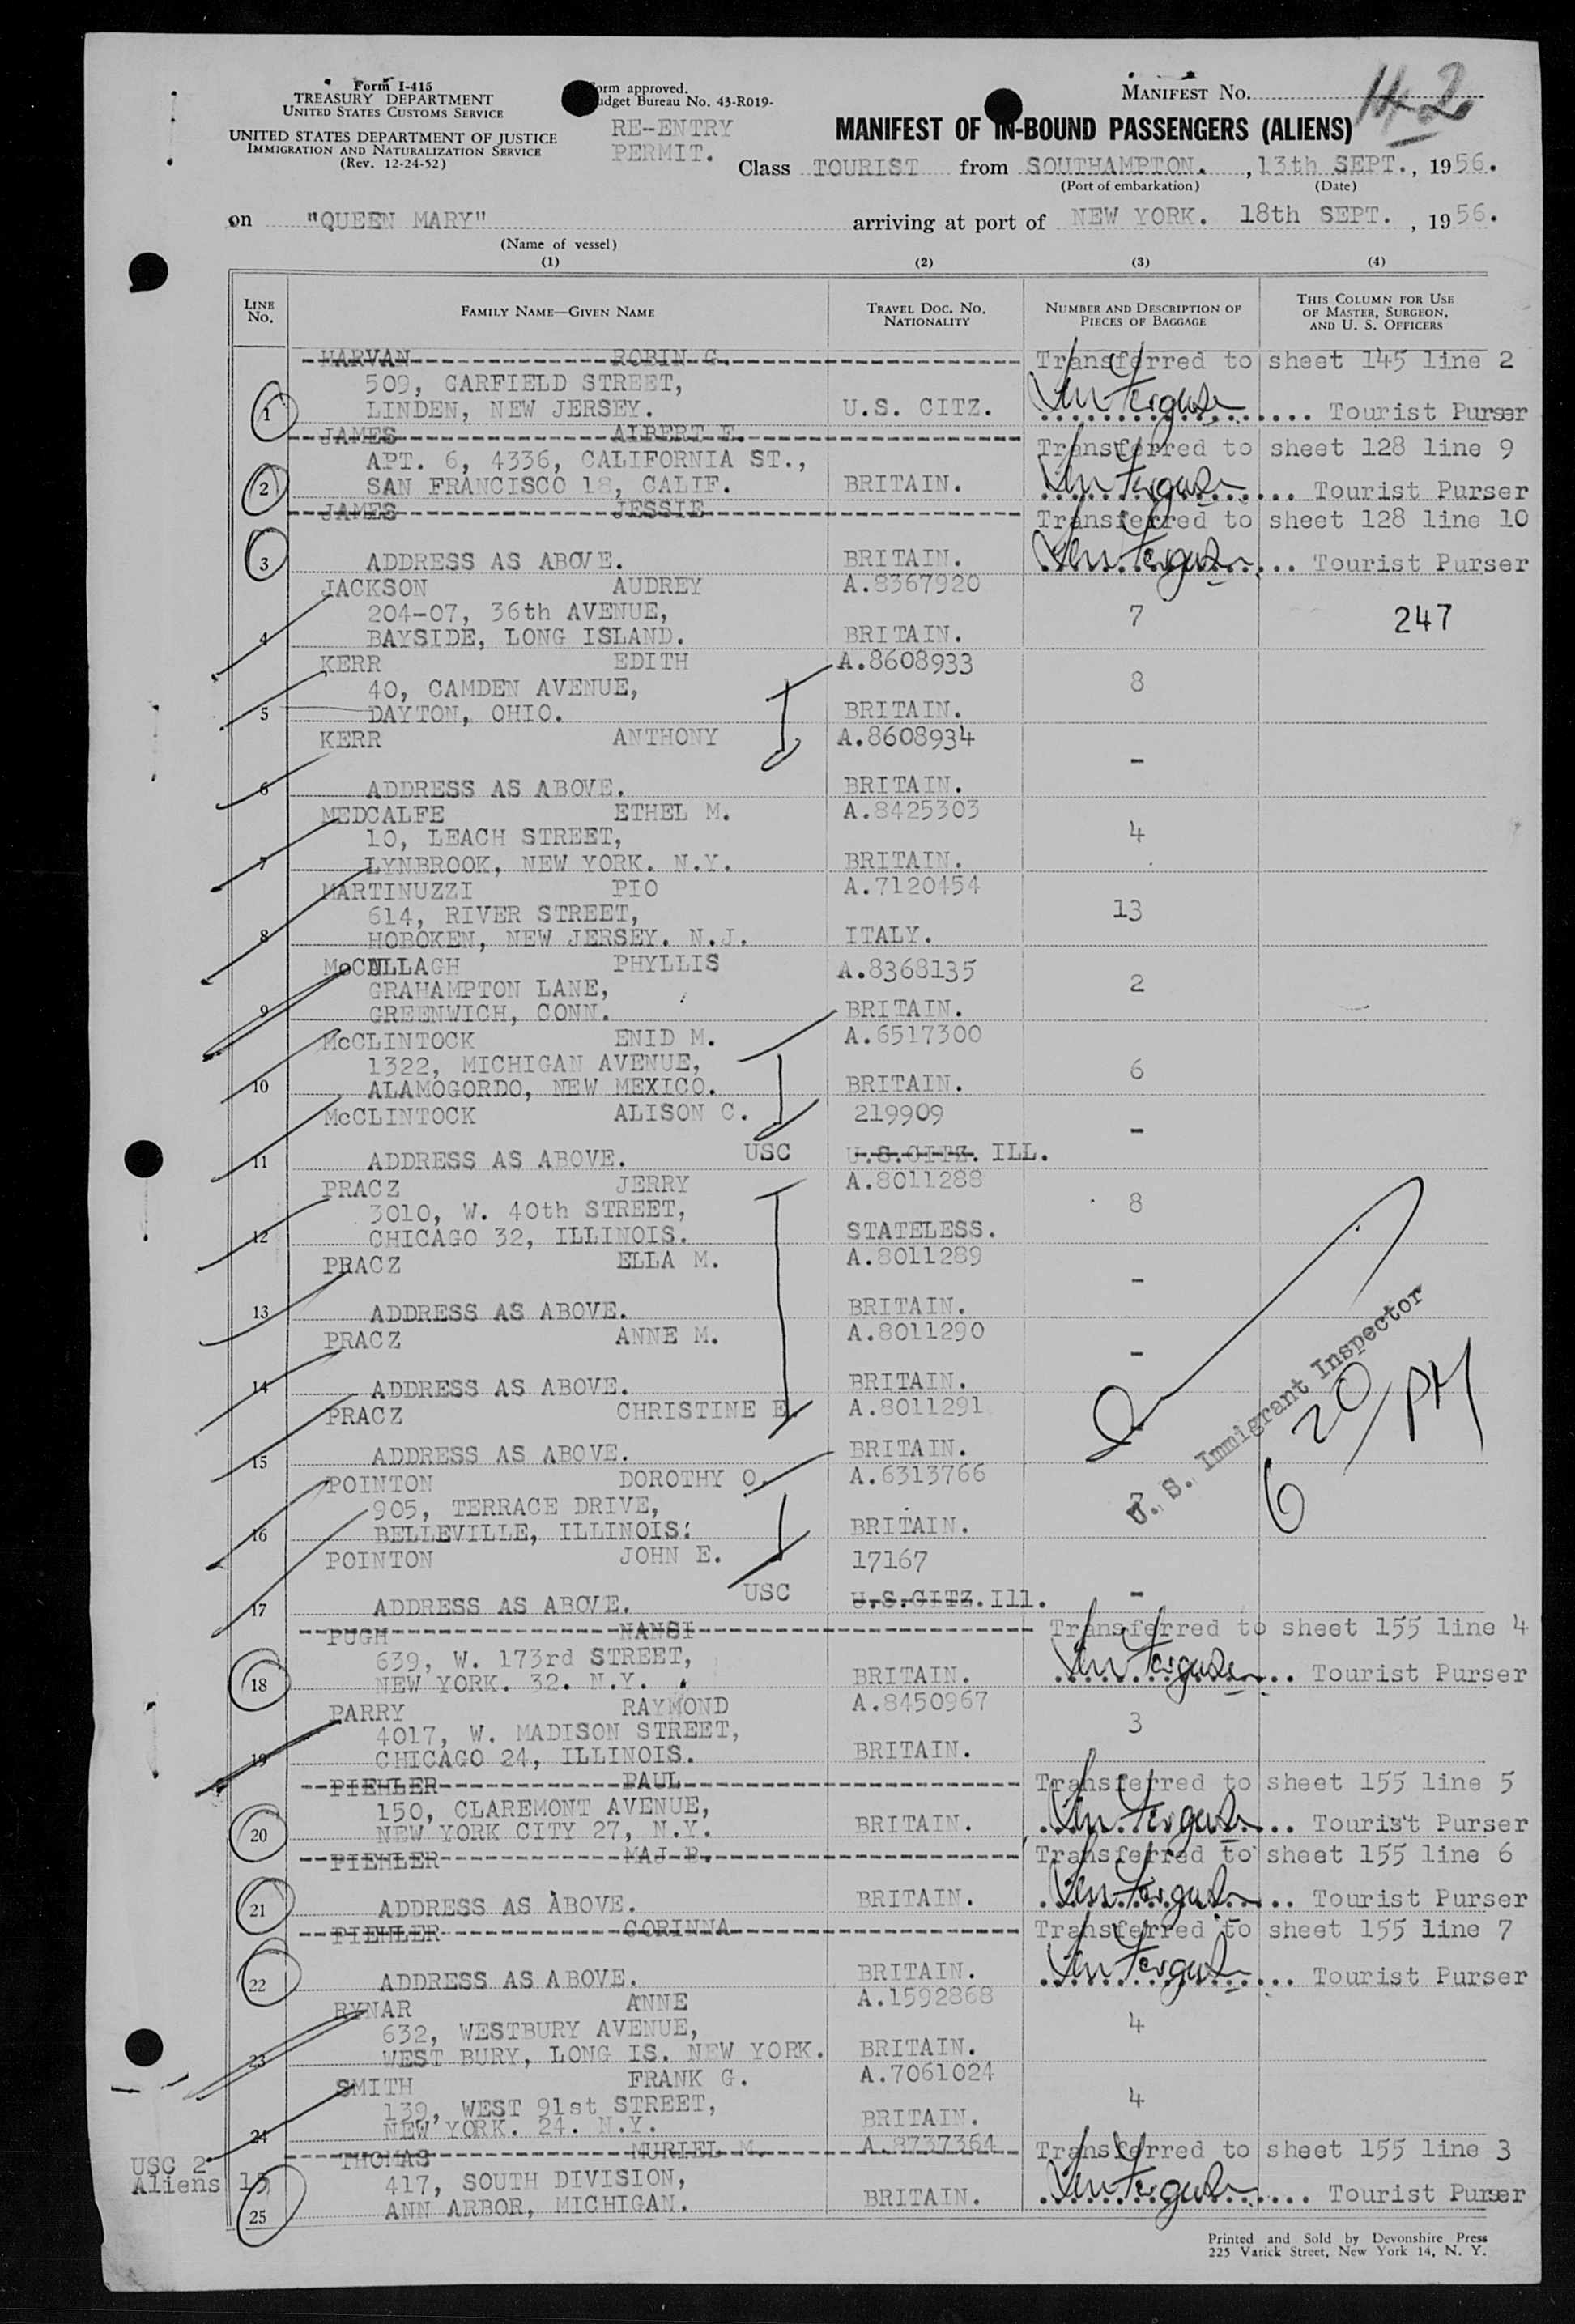 Form I-415
TREASURY DEPARTMENT
UNITED STATES CUSTOMS SERVICE
UNITED STATES DEPARTMENT OF JUSTICE
IMMIGRATION AND NATURALIZATION SERVICE
(Rev. 12-24-52)
orm approved.
udget Bureau No. 43-R019-
RE-ENTRY
PERMIT.
MANIFEST No. 142
MANIFEST OF IN-BOUND PASSENGERS (ALIENS)
Class TOURIST from SOUTHAMPTON. , 13th SEPT., 1956.
(Port of embarkation) (Date)
on "QUEEN MARY" arriving at port of NEW YORK. 18th SEPT. , 1956.
(Name of vessel)
(1) (2) (3) (4)
LINE No. FAMILY NAME—GIVEN NAME TRAVEL DOC. NO. NATIONALITY NUMBER AND DESCRIPTION OF PIECES OF BAGGAGE THIS COLUMN FOR USE OF MASTER, SURGEON, AND U. S. OFFICERS
HARVAN ROBIN G. Transferred to sheet 145 line 2
509, GARFIELD STREET,
1 LINDEN, NEW JERSEY. U.S. CITZ. Tourist Purser
JAMES ALBERT E. Transferred to sheet 128 line 9
APT. 6, 4336, CALIFORNIA ST.,
2 SAN FRANCISCO 18, CALIF. BRITAIN. Tourist Purser
JAMES JESSIE Transferred to sheet 128 line 10
3 ADDRESS AS ABOVE. BRITAIN. Tourist Purser
JACKSON AUDREY A.8367920
204-07, 36th AVENUE, 7 247
4 BAYSIDE, LONG ISLAND. BRITAIN.
KERR EDITH A.8608933
40, CAMDEN AVENUE, 8
5 DAYTON, OHIO. BRITAIN.
KERR ANTHONY A.8608934
-
6 ADDRESS AS ABOVE. BRITAIN.
MEDCALFE ETHEL M. A.8425303
10, LEACH STREET, 4
7 LYNBROOK, NEW YORK. N.Y. BRITAIN.
MARTINUZZI PIO A.7120454
614, RIVER STREET, 13
8 HOBOKEN, NEW JERSEY. N.J. ITALY.
McCULLAGH PHYLLIS A.8368135
GRAHAMPTON LANE, 2
9 GREENWICH, CONN. BRITAIN.
McCLINTOCK ENID M. A.6517300
1322, MICHIGAN AVENUE, 6
10 ALAMOGORDO, NEW MEXICO. BRITAIN.
McCLINTOCK ALISON C. 219909
-
11 ADDRESS AS ABOVE. USC U.S.CITZ. ILL.
PRACZ JERRY A.8011288
3010, W. 40th STREET, 8
12 CHICAGO 32, ILLINOIS. STATELESS.
PRACZ ELLA M. A.8011289
-
13 ADDRESS AS ABOVE. BRITAIN.
PRACZ ANNE M. A.8011290
-
14 ADDRESS AS ABOVE. BRITAIN.
PRACZ CHRISTINE E. A.8011291
15 ADDRESS AS ABOVE. BRITAIN.
U. S. Immigrant Inspector
6 20/PM
POINTON DOROTHY O. A.6313766
905, TERRACE DRIVE,
16 BELLEVILLE, ILLINOIS. BRITAIN.
POINTON JOHN E. 17167
-
17 ADDRESS AS ABOVE. USC U.S.CITZ. Ill.
PUGH NANSI Transferred to sheet 155 line 4
639, W. 173rd STREET,
18 NEW YORK. 32. N.Y. BRITAIN. Tourist Purser
PARRY RAYMOND A.8450967
4017, W. MADISON STREET, 3
19 CHICAGO 24, ILLINOIS. BRITAIN.
PIEHLER PAUL Transferred to sheet 155 line 5
150, CLAREMONT AVENUE,
20 NEW YORK CITY 27, N.Y. BRITAIN. Tourist Purser
PIEHLER MAJ B. Transferred to sheet 155 line 6
21 ADDRESS AS ABOVE. BRITAIN. Tourist Purser
PIEHLER CORINNA Transferred to sheet 155 line 7
22 ADDRESS AS ABOVE. BRITAIN. Tourist Purser
RYNAR ANNE A.1592868
632, WESTBURY AVENUE, 4
23 WEST BURY, LONG IS. NEW YORK. BRITAIN.
SMITH FRANK G. A.7061024
139, WEST 91st STREET, 4
24 NEW YORK. 24. N.Y. BRITAIN.
THOMAS MURIEL M. A.8737364 Transferred to sheet 155 line 3
USC 2
Aliens 15 417, SOUTH DIVISION,
25 ANN ARBOR, MICHIGAN. BRITAIN. Tourist Purser
Printed and Sold by Devonshire Press
225 Varick Street, New York 14, N. Y.